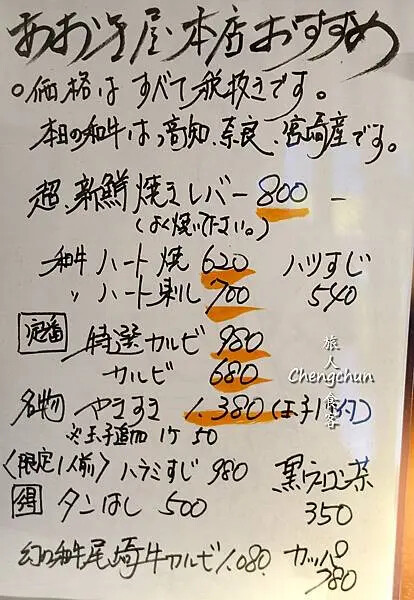 あおき屋本店おすすめ
○価格はすべて税抜きです。
本日の和牛は、高知、奈良、宮崎産です。
超、新鮮焼きレバー 800 ー
(よく焼いて下さい。)
和牛 ハート焼 620 ハツすじ
〃 ハート刺し 700 540
定番 特選カルビ 980
カルビ 680
名物 やきすき 1.380(玉子1ケ付)
※玉子追加 1ケ 50
〈限定1人前〉ハラミすじ 980 黒ウーロン茶
得 タンはし 500 350
幻の和牛尾崎牛カルビ 1.080. カッパ
380
旅人食客
Chengchun